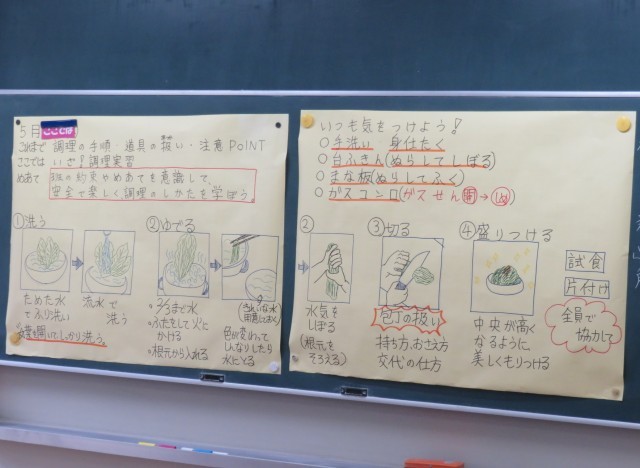 5月 ここでは
これまで 調理の手順・道具の扱い・注意POINT
ここでは いざ!調理実習
めあて 班の約束やめあてを意識して、
安全で楽しく調理のしかたを学ぼう。
①洗う
ためた水
でふり洗い
流水で
洗う
根を開いてしっかり洗う。
②ゆでる
・2/3まで水
・ふたをして火に
かける
・根元から入れる
(きれいな水)
用意しておく
色が変わって
しんなりしたら
水にとる
いつも気をつけよう!
○手洗い 身仕たく
○台ふきん(ぬらしてしぼる)
○まな板(ぬらしてふく)
○ガスコンロ(ガスせん 開→しめ)
②
水気を
しぼる
(根元を
そろえる)
③切る
包丁の扱い
持ち方、おさえ方
交代の仕方
④盛りつける
中央が高く
なるように
美しくもりつける
試食
片付け
全員で
協力して